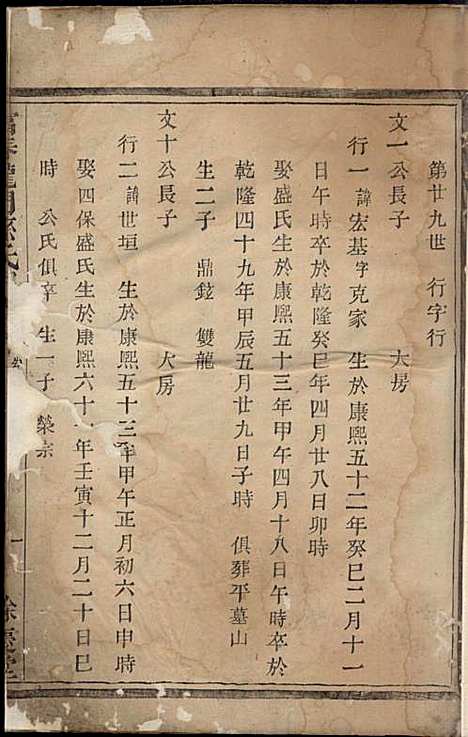 第廿九世 行字行
文一公長子 大房
行一諱宏基字克家 生於康熙五十二年癸巳二月十一
日午時卒於乾隆癸巳年四月廿八日卯時
娶盛氏生於康熙五十三年甲午四月十八日午時卒於
乾隆四十九年甲辰五月廿九日子時 俱葬平墓山
生二子 鼎鉉 雙龍
文十公長子 大房
行二諱世垣 生於康熙五十三年甲午正月初六日申時
娶四保盛氏生於康熙六十一年壬寅十二月二十日巳
時 公氏俱卒 生一子 榮宗
龍
一
餘慶堂